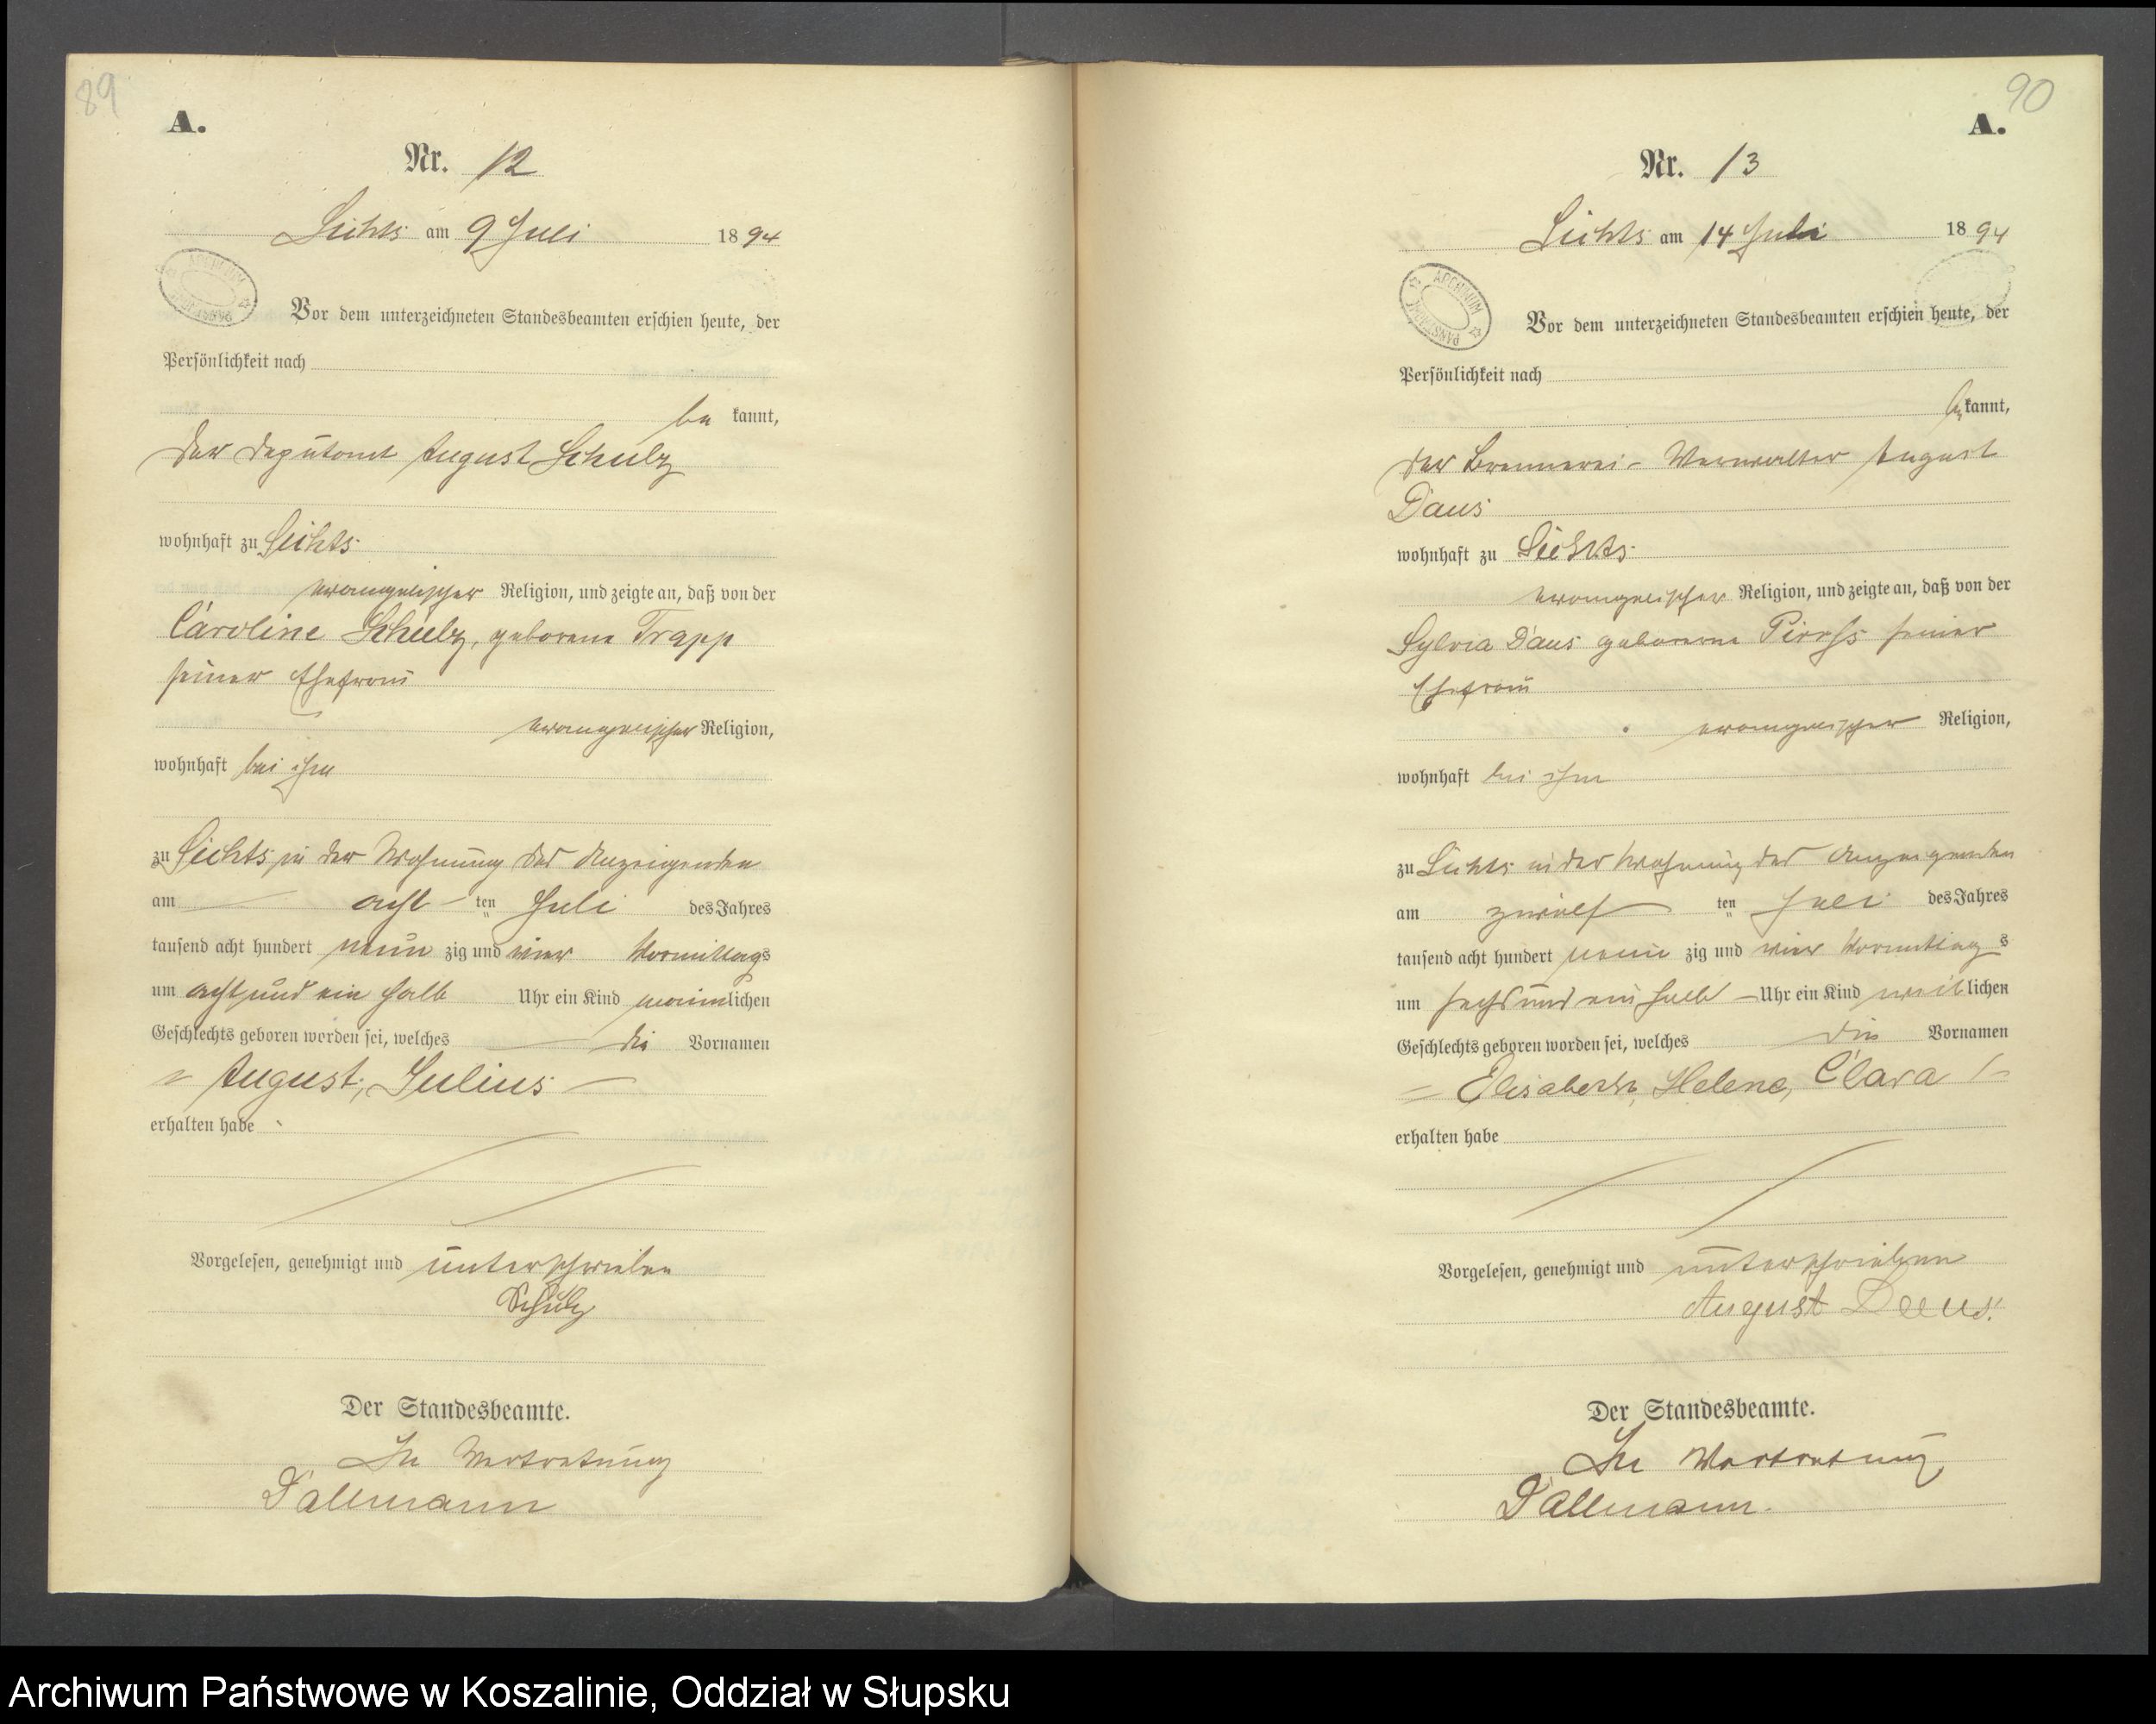 89
A.
Nr. 12
Lichts am 9 Juli 1894
Vor dem unterzeichneten Standesbeamten erschien heute, der
Persönlichkeit nach
be kannt,
der Deputant August Schulz
wohnhaft zu Lichts
evangelischer Religion, und zeigte an, daß von der
Caroline Schulz, geborene Trapp
seiner Ehefrau
evangelischer Religion,
wohnhaft bei ihm
zu Lichts in der Wohnung des Anzeigenden
am acht ten Juli des Jahres
tausend acht hundert neun zig und vier Vormittags
um acht und ein halb Uhr ein Kind männlichen
Geschlechts geboren worden sei, welches die Vornamen
August, Julius
erhalten habe
Vorgelesen, genehmigt und unterschrieben
Schulz
Der Standesbeamte.
In Vertretung
Dallmann
90
A.
Nr. 13
Lichts am 14 Juli 1894
ARCHIWUM PAŃSTWOWE
Vor dem unterzeichneten Standesbeamten erschien heute, der
Persönlichkeit nach
be kannt,
der Brennerei-Verwalter August
Daus
wohnhaft zu Lichts
evangelischer Religion, und zeigte an, daß von der
Sylvia Daus geborene seiner
Ehefrau
evangelischer Religion,
wohnhaft bei ihm
zu Lichts in der Wohnung des Anzeigenden
am zwölf ten Juli des Jahres
tausend acht hundert neun zig und vier Vormittags
um sechs und ein halb Uhr ein Kind weiblichen
Geschlechts geboren worden sei, welches die Vornamen
Elisabeth, Helene, Clara
erhalten habe
Vorgelesen, genehmigt und unterschrieben
August Daus.
Der Standesbeamte.
In Vertretung
Dallmann.
Archiwum Państwowe w Koszalinie, Oddział w Słupsku